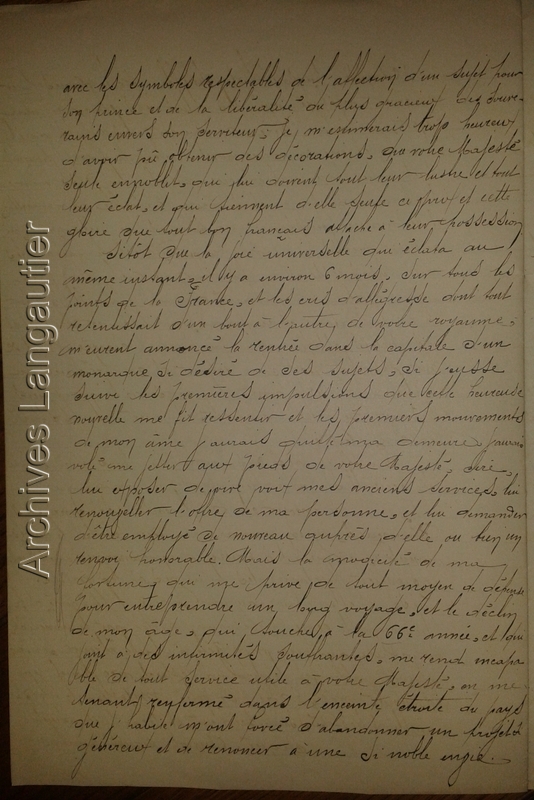 avec les symboles respectables de l'affection d'un sujet pour
son prince et de la libéralité du plus gracieux des souve-
rains envers son serviteur. Je m'estimerais trop heureux
d'avoir pu obtenir des décorations, que votre Majesté
seule ennoblit, qui lui doivent tout leur lustre et tout
leur éclat, et qui tiennent d'elle seule ce prix et cette
gloire que tout bon français attache à leur possession
Sitôt que la joie universelle qui éclata au
même instant, il y a environ 6 mois, sur tous les
points de la France, et les cris d'allégresse dont tout
retentissait d'un bout à l'autre de votre royaume,
m'eurent annoncé la rentrée dans la capitale d'un
monarque si désiré de ses sujets, si j'eusse
suivi les premières impulsions que cette heureuse
nouvelle me fit ressentir et les premiers mouvements
de mon âme j'aurais quitté ma demeure j'aurais
volé me jetter aux pieds de votre Majesté, Sire,
lui exposer de vive voix mes anciens services, lui
renouveller l'offre de ma personne, et lui demander
d'être employé de nouveau auprès d'elle ou bien un
renvoi honorable. Mais la modicité de ma
fortune, qui me prive de tout moyen de dépense
pour entreprendre un long voyage, et le déclin
de mon âge, qui touche à la 66e année, et qui
joint à des infirmités, me rend incapa-
ble de tout service utile à votre Majesté, en me
tenant renfermé dans l'enceinte étroite du pays
que j'habite m'ont forcé d'abandonner un projet
généreux et de renoncer à une si noble envie.
Archives Langautier